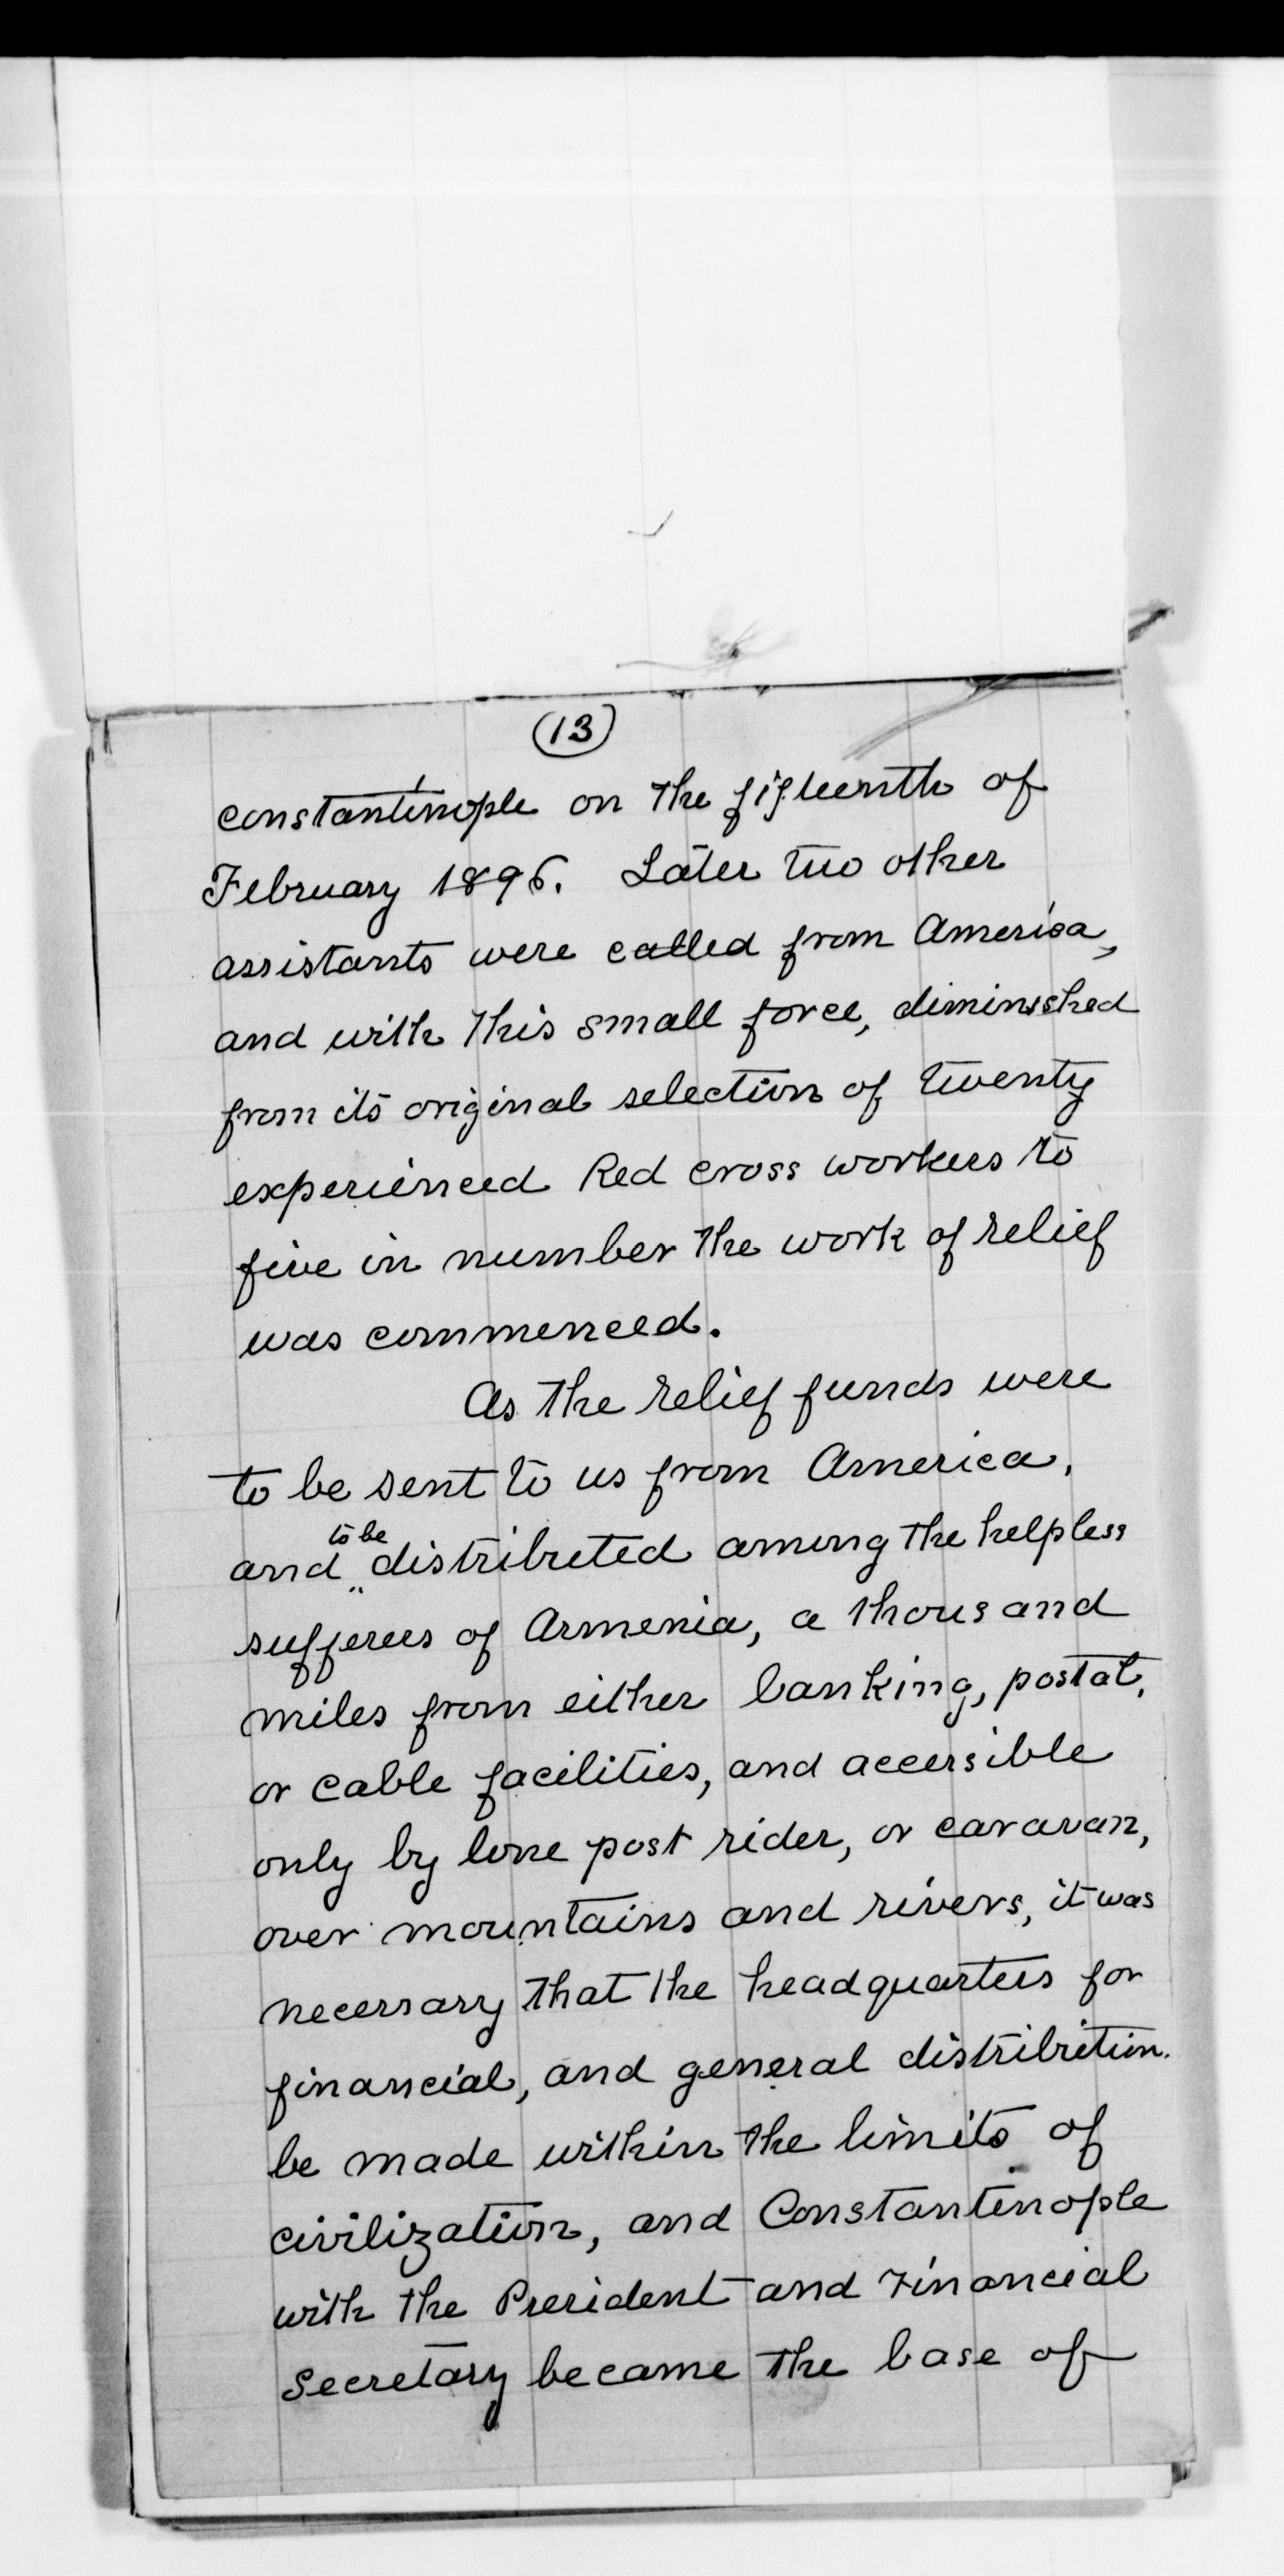 (13)
Constantinople on the fifteenth of
February 1896. Later two other
assistants were called from America,
and with this small force, diminished
from its original selection of twenty
experienced Red cross workers to
five in number the work of relief
was commenced.
As the relief funds were
to be sent to us from America,
to be
and distributed among the helpless
sufferers of Armenia, a thousand
miles from either banking, postal,
or cable facilities, and accessible
only by lone post rider, or caravan,
over mountains and rivers, it was
necessary that the headquarters for
financial, and general distribution
be made within the limits of
civilization, and Constantinople
with the President and Financial
Secretary became the base of